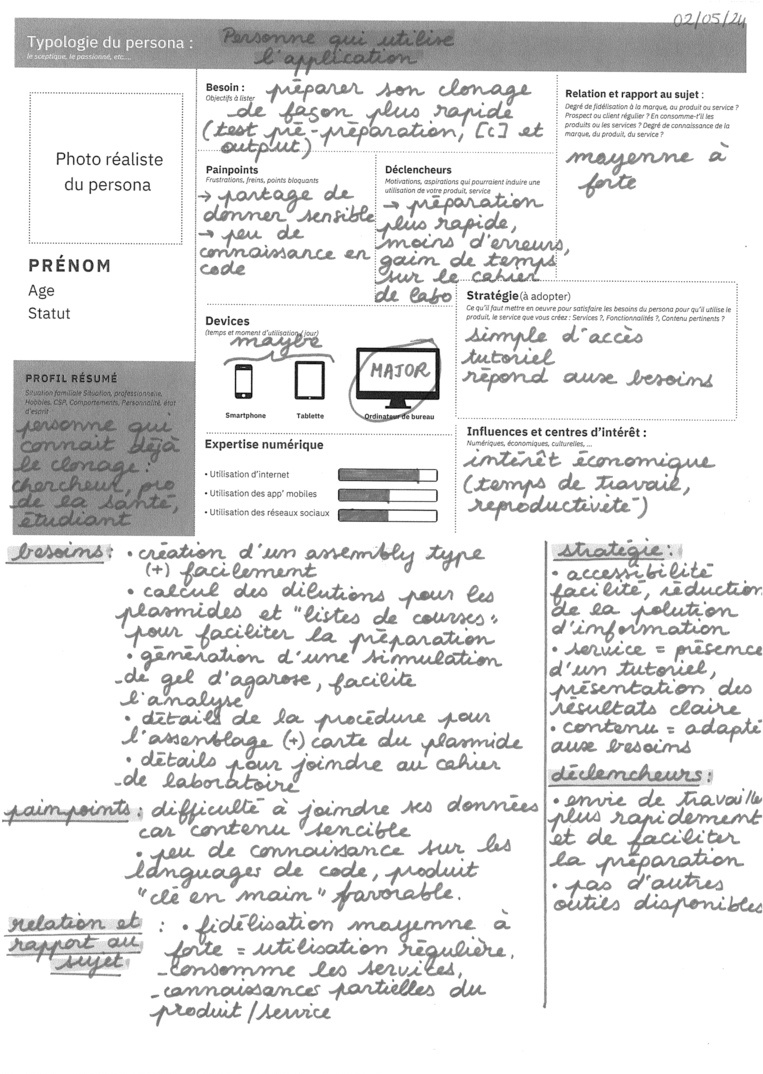 02/05/24
Typologie du persona : Personne qui utilise
le sceptique, le passionné, etc...
l'application
Photo réaliste
du persona
PRÉNOM
Age
Statut
PROFIL RÉSUMÉ
Situation familiale Situation, professionnelle,
Hobbies, CSP, Comportements, Personnalité, état
d'esprit
personne qui
connait déjà
le clonage :
chercheur, pro
de la santé,
étudiant
Besoin : préparer son clonage
Objectifs à lister
de façon plus rapide
(test pré-préparation, [c] et
output)
Painpoints
Frustrations, freins, points bloquants
→ partage de
donner sensible
→ peu de
connaissance en
code
Déclencheurs
Motivations, aspirations qui pourraient induire une
utilisation de votre produit, service
→ préparation
plus rapide,
moins d'erreurs,
gain de temps
sur le cahier
de labo
Relation et rapport au sujet :
Degré de fidélisation à la marque, au produit ou service ?
Prospect ou client régulier ? En consomme-t'il les
produits ou les services ? Degré de connaissance de la
marque, du produit, du service ?
moyenne à
forte
Devices
(temps et moment d'utilisation / jour)
maybe
MAJOR
Smartphone
Tablette
Ordinateur de bureau
Stratégie (à adopter)
Ce qu'il faut mettre en oeuvre pour satisfaire les besoins du persona pour qu'il utilise le
produit, le service que vous créez : Services ?, Fonctionnalités ?, Contenu pertinents ?
simple d'accès
tutoriel
répond aux besoins
Expertise numérique
• Utilisation d'internet
• Utilisation des app' mobiles
• Utilisation des réseaux sociaux
Influences et centres d'intérêt :
Numériques, économiques, culturelles, ...
intérêt économique
(temps de travail,
reproductiveté)
besoins : • création d'un assembly type
(+) facilement
• calcul des dilutions pour les
plasmides et "listes de courses"
pour faciliter la préparation
• génération d'une simulation
de gel d'agarose, facilite
l'analyse
• détails de la procédure pour
l'assemblage (+) carte du plasmide
• détails pour joindre au cahier
de laboratoire
painpoints : difficulté à joindre ses données
car contenu sencible
• peu de connaissance sur les
languages de code, produit
"clé en main" favorable.
relation et
rapport au
sujet
: • fidélisation moyenne à
forte = utilisation régulière.
- consomme les services,
- connaissances partielles du
produit / service
stratégie :
• accessibilité
facilité, réduction
de la polution
d'information
• service = présence
d'un tutoriel,
présentation des
résultats claire
• contenu = adapté
aux besoins
déclencheurs :
• envie de travaille
plus rapidement
et de faciliter
la préparation
• pas d'autres
outils disponibles